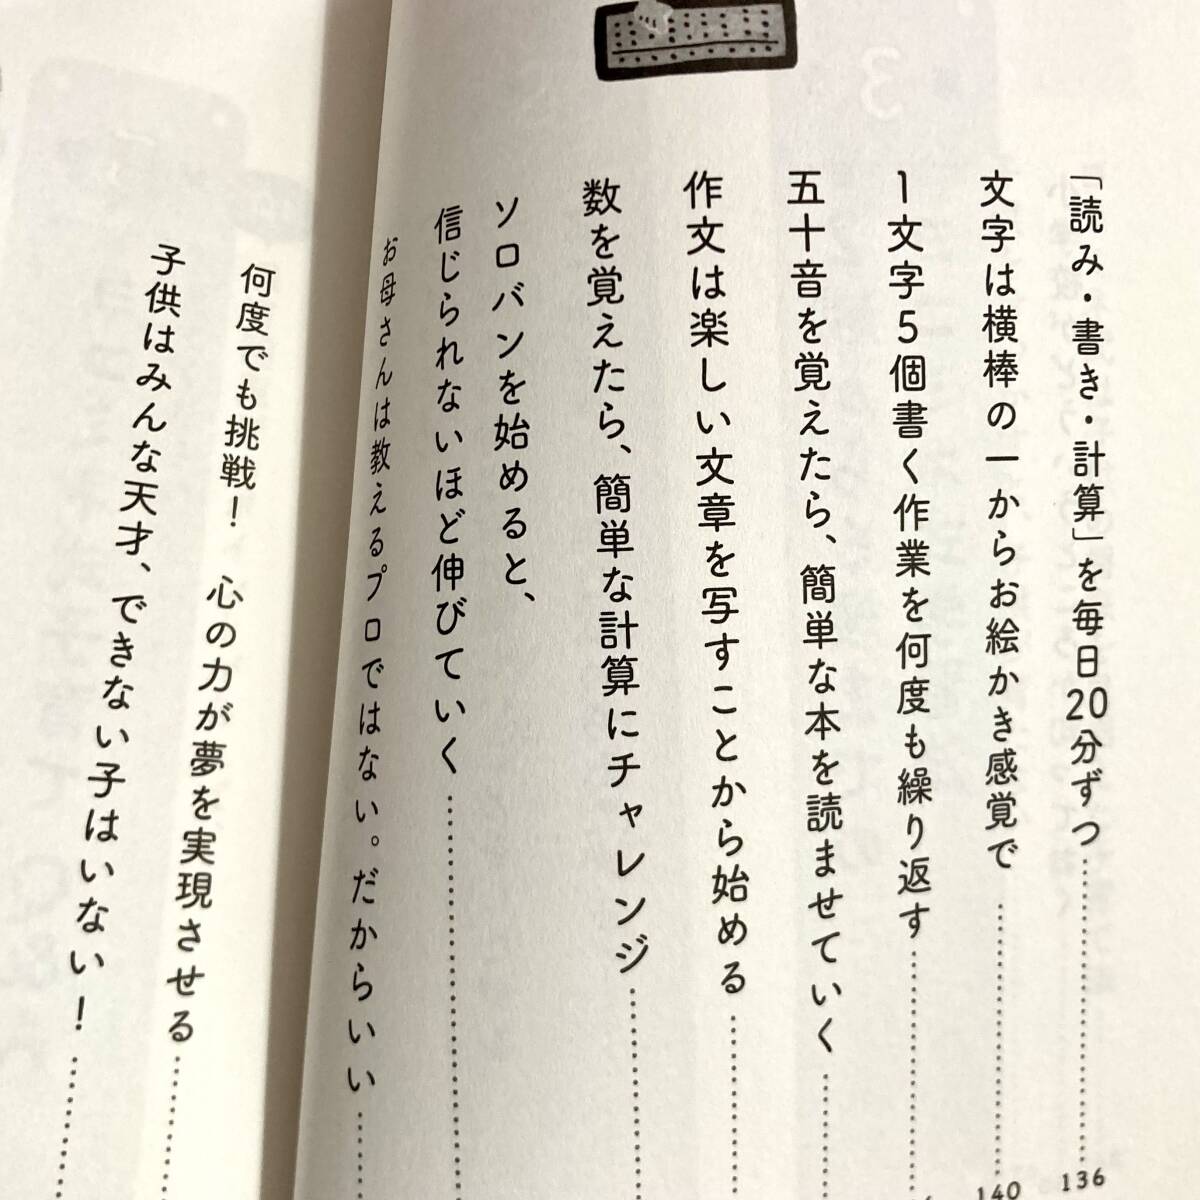 「読み・書き・計算」を毎日20分ずつ……136
文字は横棒の一からお絵かき感覚で……140
1文字5個書く作業を何度も繰り返す……
五十音を覚えたら、簡単な本を読ませていく……
作文は楽しい文章を写すことから始める……
数を覚えたら、簡単な計算にチャレンジ……
ソロバンを始めると、
信じられないほど伸びていく……
お母さんは教えるプロではない。だからいい……
何度でも挑戦！ 心の力が夢を実現させる……
子供はみんな天才、できない子はいない！……